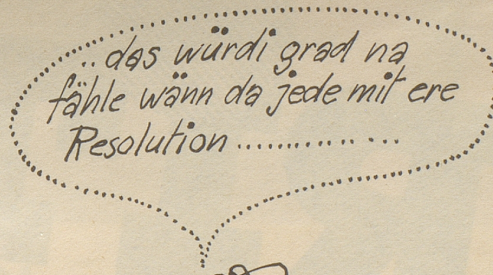 ..das würdi grad na
fähle wänn da jede mit ere
Resolution ...............